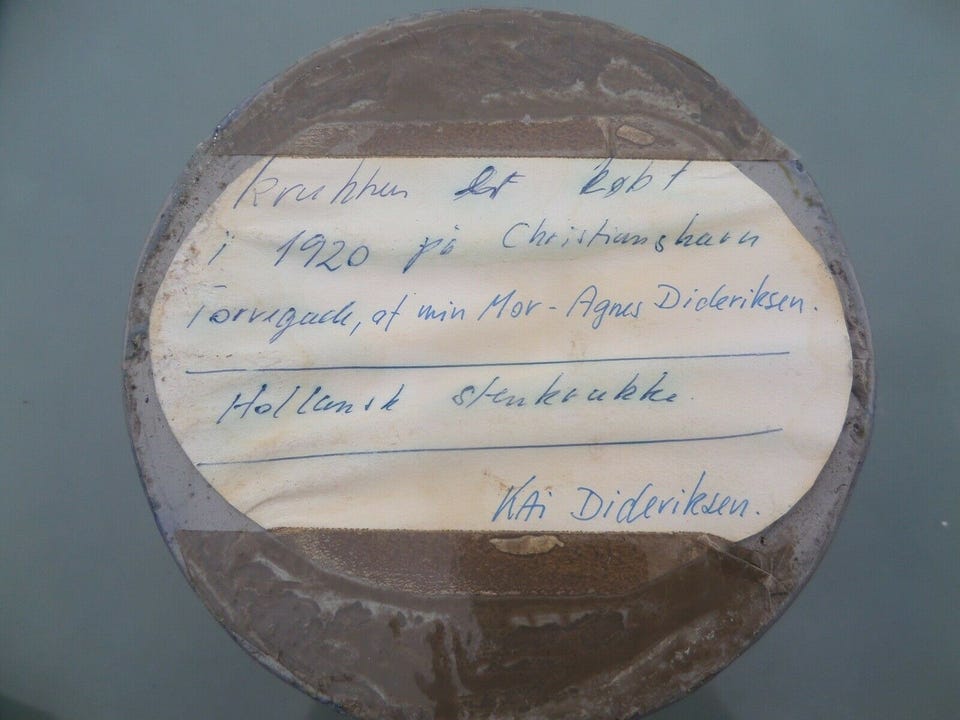 Krukken er købt
i 1920 på Christianshavn
Torvegade, af min Mor - Agnes Dideriksen.
Hollansk stenkrukke.
KAi Dideriksen.